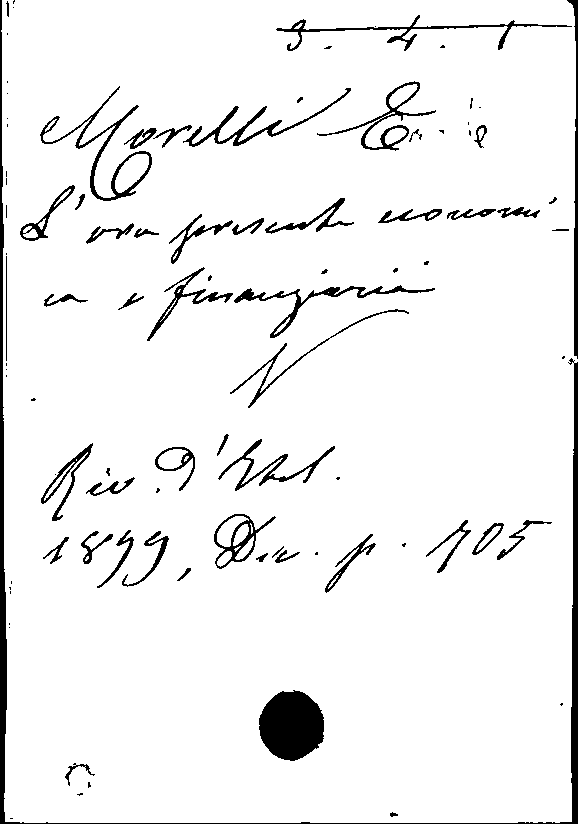 3. 4. 1
Morelli
L'ora presente economi-
ca e finanziaria
Riv. d'Ital.
1899, Dic. p. 705